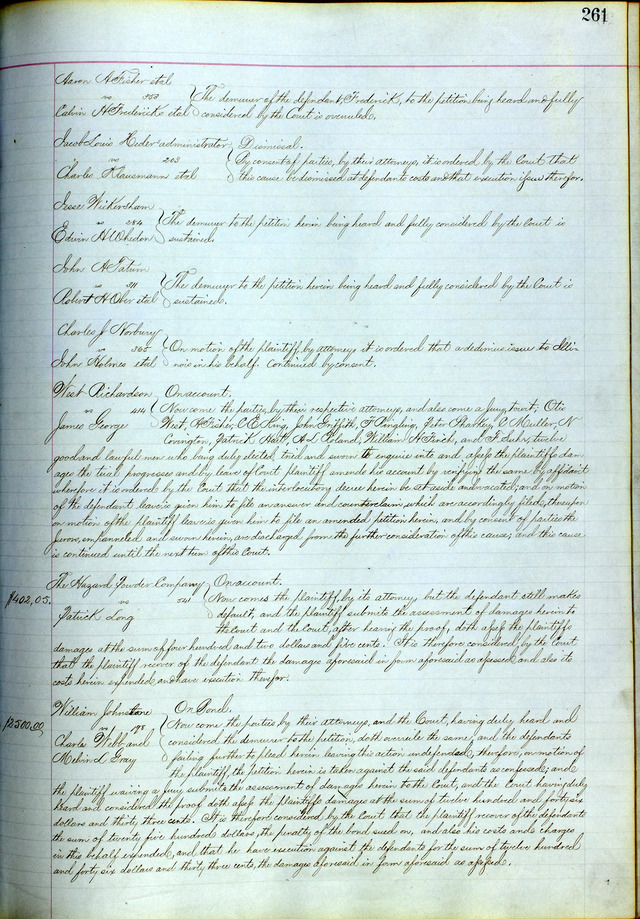 261
Aaron H Fisher etal
vs 353 The demurrer of the defendant, Frederick, to the petition being heard and fully
Calvin H Frederick etal considered by the Court is overruled.
Jacob Louis Heder administrator Dismissal.
vs 203 By consent of parties, by their attorneys, it is ordered by the Court that
Charles Klausmann etal this cause be dismissed at defendants costs and that execution issue therefor.
Jesse Wickersham
vs 284 The demurrer to the petition herein being heard and fully considered by the Court is
Edwin H Whedon sustained.
John A Tatum
vs 311 The demurrer to the petition herein being heard and fully considered by the Court is
Robert H Ober etal sustained.
Charles J Norbury
vs 365 On motion of the plaintiff by attorney it is ordered that a dedimus issue to Illi-
John Holmes etal nois in his behalf. Continued by consent.
West Richardson On account.
vs 414 Now come the parties by their respective attorneys, and also come a Jury, towit, Otis
James George West, H Fisher, C E King, John Griffith, F Ringling, Peter Sharkey, C Muller, N
Covington, Patrick Hart, A L Poland, William H Finch, and F Fisher, twelve
good and lawful men who being duly elected, tried and sworn to enquire into and assess the plaintiffs dam-
ages the trial progresses and by leave of Court plaintiff amends his account by verifying the same by affidavit
wherefore it is ordered by the Court that the interlocutory decree herein be set aside and vacated; and on motion
of the defendant leave is given him to file an answer and counterclaim, which are accordingly filed, thereupon
on motion of the plaintiff leave is given him to file an amended petition herein, and by consent of parties the
jurors, empanneled and sworn herein, are discharged from the further consideration of this cause; and this cause
is continued until the next term of this Court.
The Hazard Powder Company On account.
$402,05. vs 541 Now comes the plaintiff by its attorney, but the defendant still makes
Patrick Long default, and the plaintiff submits the assessment of damages herein to
the Court and the Court, after hearing the proof, doth assess the plaintiffs
damages at the sum of four hundred and two dollars and five cents. It is therefore considered by the Court
that the plaintiff recover of the defendant the damages aforesaid in form aforesaid as assessed, and also its
costs herein expended, and have execution therefor.
William Johnstone On Bond.
$2500.00 vs 171 Now come the parties by their attorneys, and the Court, having duly heard and
Charles Webb and considered the demurrer to the petition, doth overrule the same, and the defendants
Melvin L Gray failing further to plead herein leaving this action undefended, therefore, on motion of
the plaintiff, the petition herein is taken against the said defendants as confessed; and
the plaintiff waiving a jury submits the assessment of damages herein to the Court, and the Court having duly
heard and considered the proof doth assess the plaintiffs damages at the sum of twelve hundred and forty six
dollars and thirty three cents. It is therefore considered by the Court that the plaintiff recover of the defendants
the sum of twenty five hundred dollars, the penalty of the bond sued on, and also his costs and charges
in this behalf expended, and that he have execution against the defendants for the sum of twelve hundred
and forty six dollars and thirty three cents, the damages aforesaid in form aforesaid as assessed.